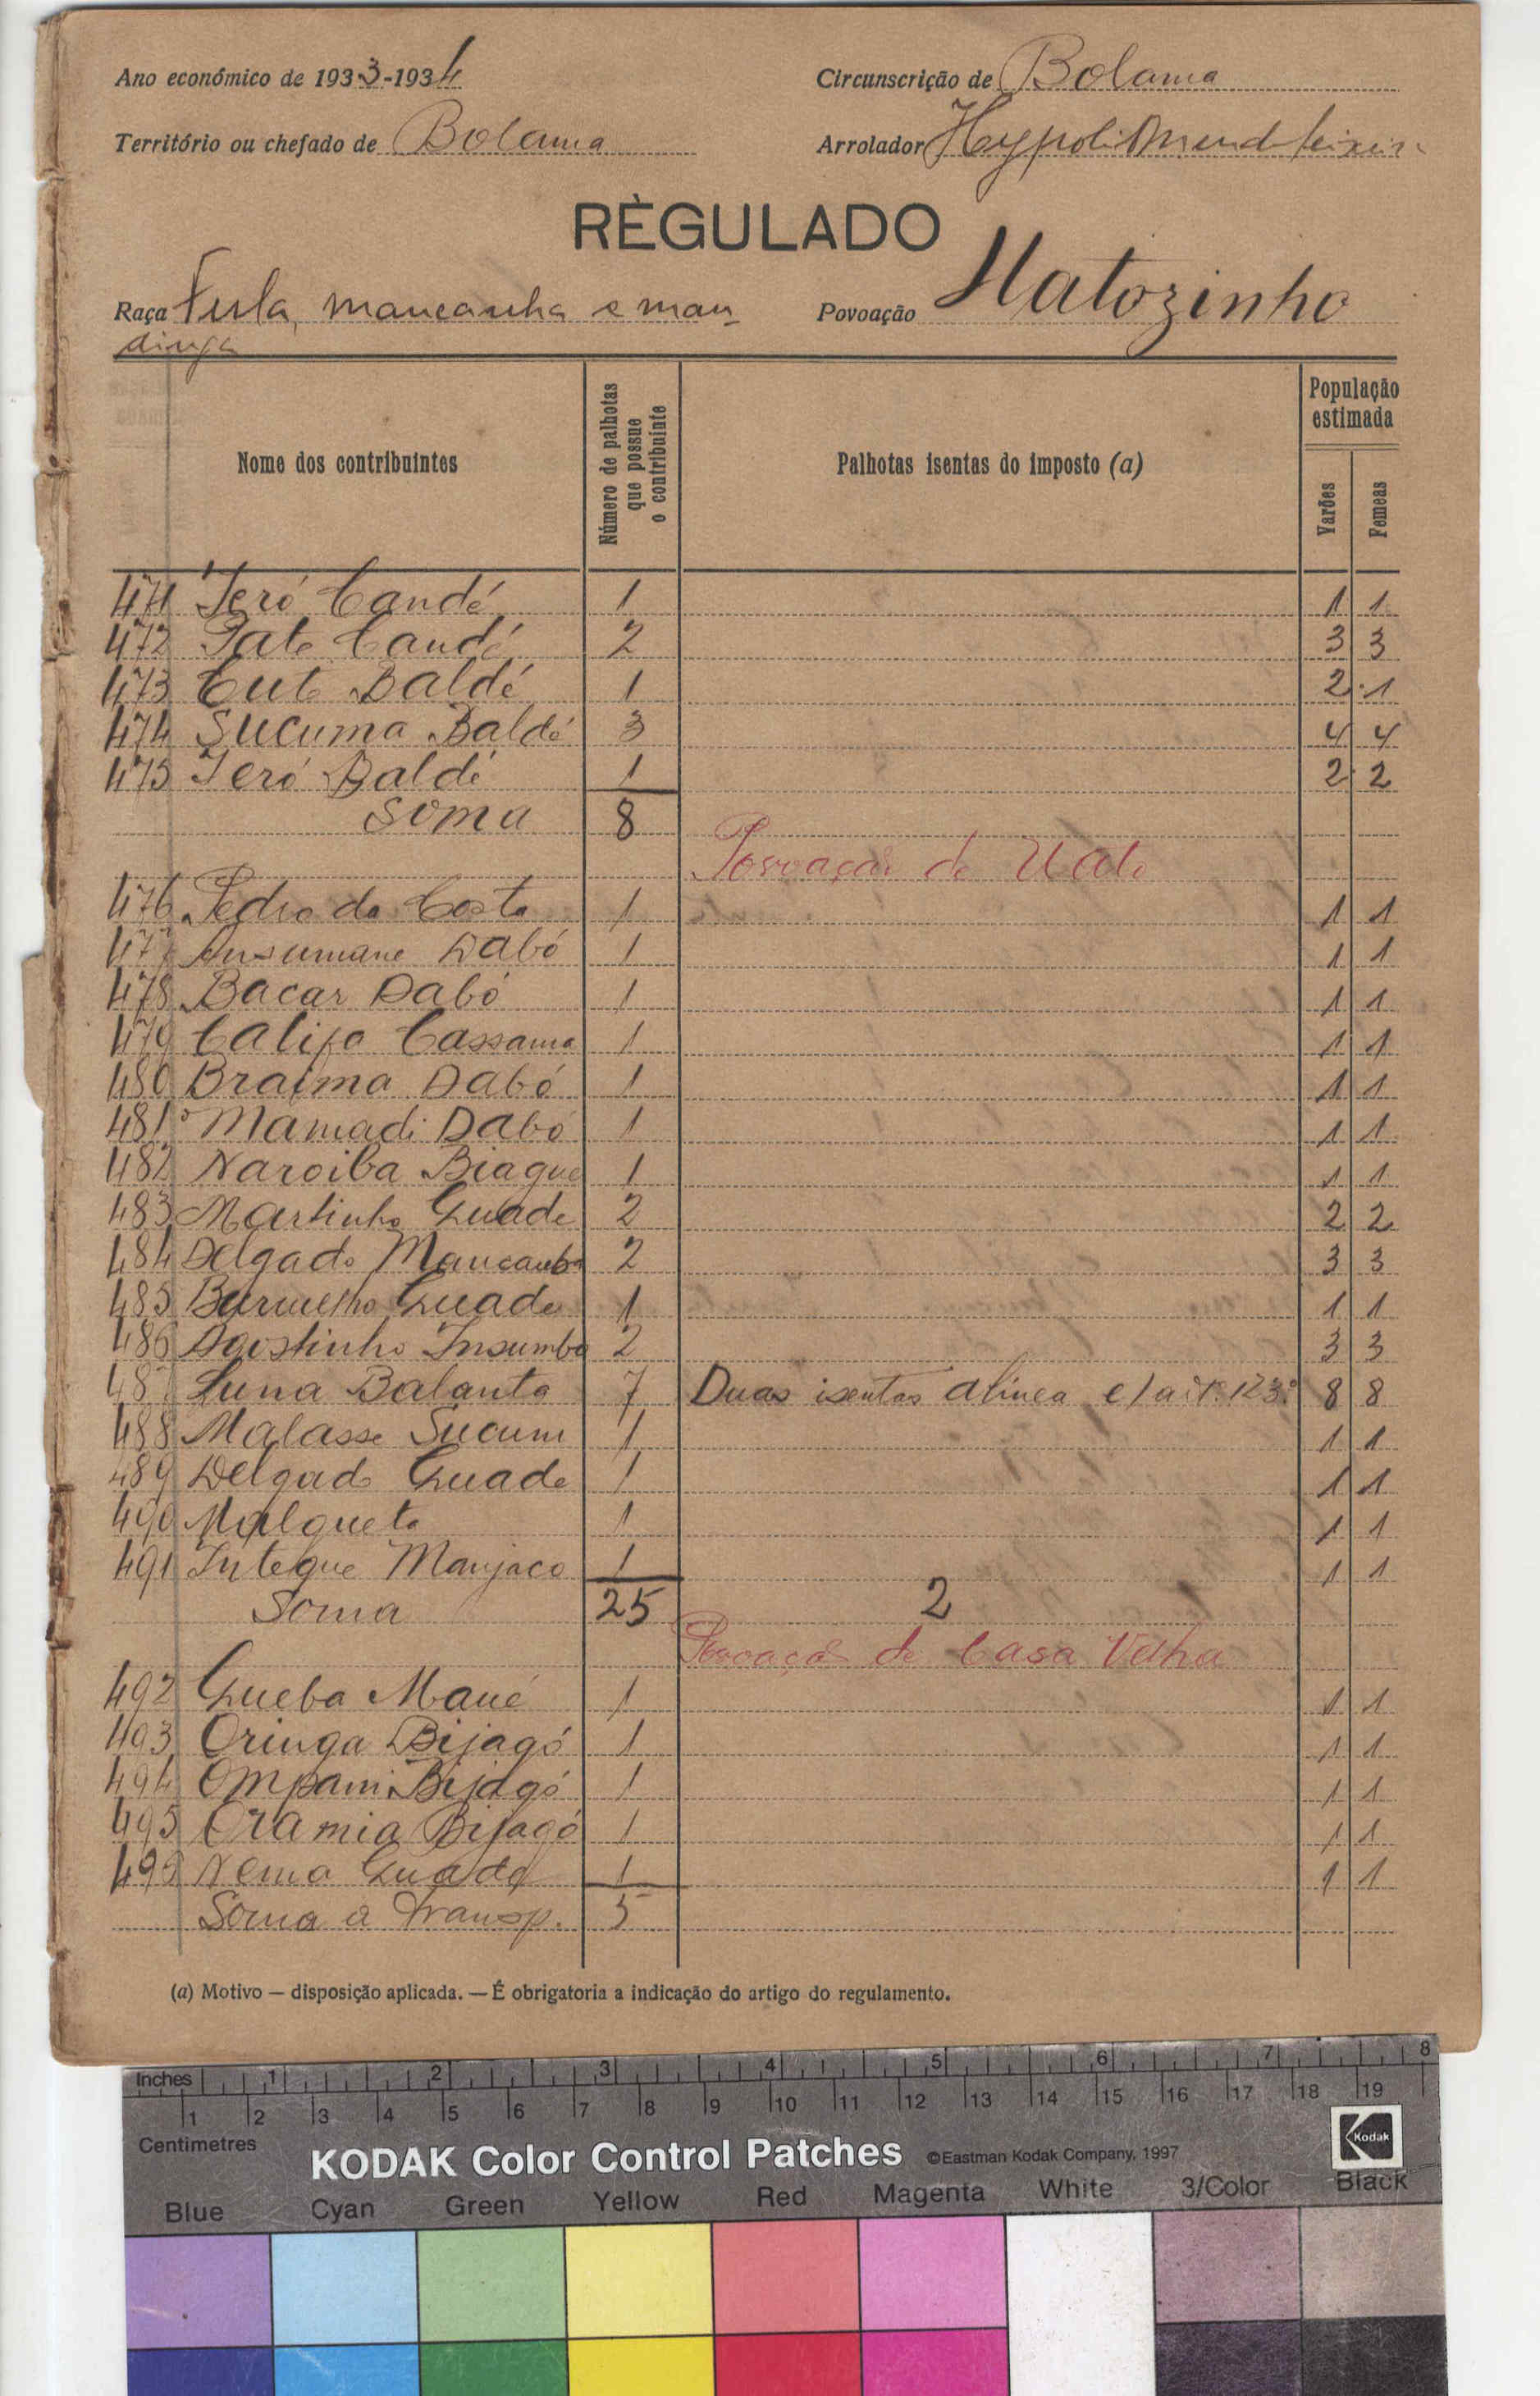 Ano económico de 1933-1934 Circunscrição de Bolama
Território ou chefado de Bolama Arrolador Hypoli Mend Teixeir
RÈGULADO
Raça Fula, mancanha e man Povoação Matozinho
dinga
Nome dos contribuintes Número de palhotas que possue o contribuinte Palhotas isentas do imposto (a) População estimada Varões Femeas
471 Jeró Candé 1 1 1
472 Pate Candé 2 3 3
473 Cute Baldé 1 2 1
474 Sucuma Baldé 3 4 4
475 Jeró Baldé 1 2 2
Soma 8
Povoação de Uato
476 Pedro da Costa 1 1 1
477 Ansumane Dabó 1 1 1
478 Bacar Dabó 1 1 1
479 Califa Cassama 1 1 1
480 Braima Dabó 1 1 1
481 Mamadi Dabó 1 1 1
482 Naroiba Biague 1 1 1
483 Martinho Guade 2 2 2
484 Delgado Mancanha 2 3 3
485 Guade 1 1 1
486 Agostinho Insumba 2 3 3
487 Luna Balanta 7 Duas isentas alinea e) art. 123.º 8 8
488 Malasse Sucum 1 1 1
489 Delgado Guade 1 1 1
490 Malgueta 1 1 1
491 Inteque Manjaco 1 1 1
Soma 25 2
Povoação de Casa Velha
492 Gueba Mané 1 1 1
493 Oringa Bijagó 1 1 1
494 Ompani Bijagó 1 1 1
495 Oramia Bijagó 1 1 1
495 Nema Guade 1 1 1
Soma a transp. 5
(a) Motivo — disposição aplicada. — É obrigatoria a indicação do artigo do regulamento.
Inches 1 2 3 4 5 6 7 8
1 2 3 4 5 6 7 8 9 10 11 12 13 14 15 16 17 18 19
Centimetres
KODAK Color Control Patches ©Eastman Kodak Company, 1997 Kodak
Blue Cyan Green Yellow Red Magenta White 3/Color Black